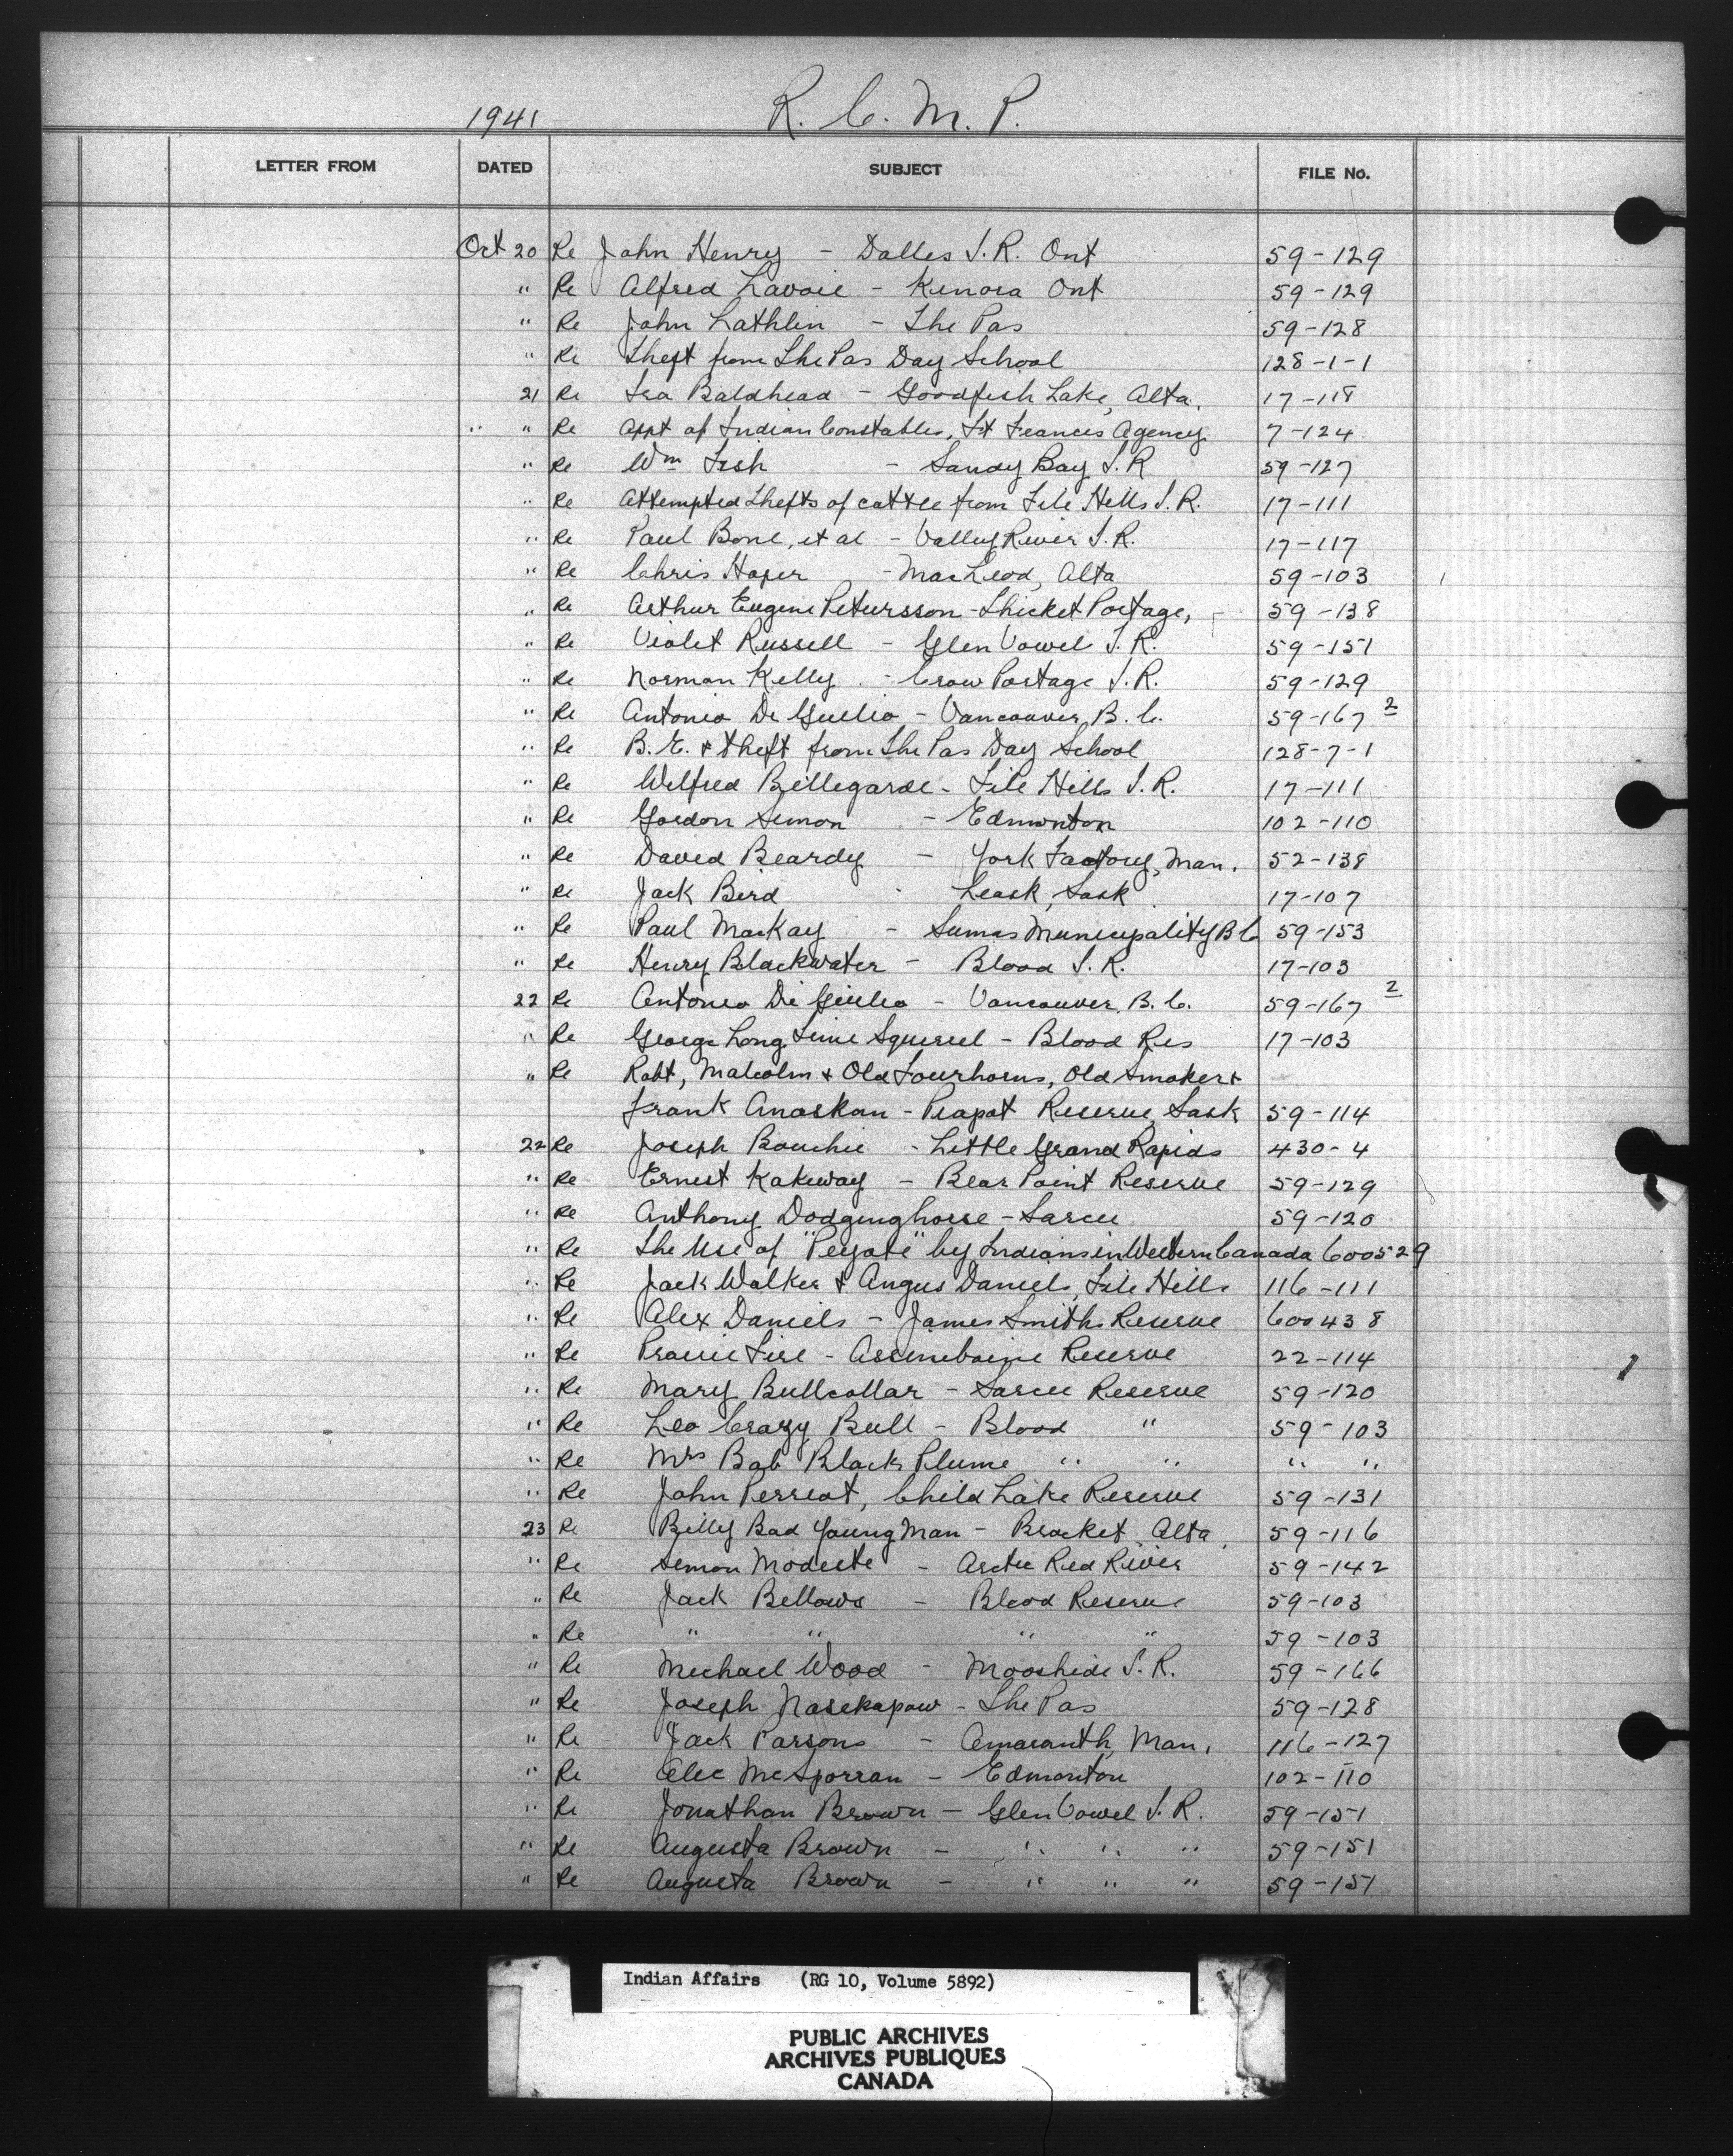 1941 R. C. M. P.
LETTER FROM DATED SUBJECT FILE No.
Oct 20 Re John Henry - Dalles I.R. Ont 59-129
" Re Alfred Lavoie - Kenora Ont 59-129
" Re John Lathlin - The Pas 59-128
" Re Theft from The Pas Day School 128-1-1
21 Re Ira Baldhead - Goodfish Lake, Alta. 17-118
" " Re Appt of Indian Constables, Ft Frances Agency 7-124
" Re Wm Fish - Sandy Bay I.R 59-127
" Re Attempted Thefts of cattle from File Hills I.R. 17-111
" Re Paul Bone, et al - Valley River I.R. 17-117
" Re Chris - MacLeod, Alta 59-103
" Re Arthur Eugene Petursson - Thicket Portage, - 59-138
" Re Violet Russell - Glen Vowel I.R. 59-151
" Re Norman Kelly - Crow Portage I.R. 59-129
" Re Antonio Di Giulio - Vancouver, B.C. 59-167 2
" Re B.E. & theft from The Pas Day School 128-7-1
" Re Wilfred Bellegarde - File Hills I.R. 17-111
" Re Gordon Simon - Edmonton 102-110
" Re David Beardy - York Factory, Man. 52-138
" Re Jack Bird - Leask, Sask 17-107
" Re Paul MacKay - Sumas Municipality B C 59-153
" Re Henry Blackwater - Blood I.R. 17-103
22 Re Antonio Di Giulio - Vancouver, B.C. 59-167 2
" Re George Long Time Squirrel - Blood Res 17-103
" Re Robt, Malcolm & Old Fourhorns, Old Smoker &
Frank Anaskan - Piapot Reserve, Sask 59-114
22 Re Joseph Bouchie - Little Grand Rapids 430-4
" Re Ernest Kakeway - Bear Point Reserve 59-129
" Re Anthony Dodginghorse - Sarcee 59-120
" Re The Use of "Peyote" by Indians in Western Canada 600529
" Re Jack Walker & Angus Daniels, File Hills 116-111
" Re Alex Daniels - James Smith Reserve 600438
" Re Prairie Fire - Assiniboine Reserve 22-114
" Re Mary Bullcollar - Sarcee Reserve 59-120
" Re Leo Crazy Bull - Blood " 59-103
" Re Mrs Bob Black Plume " " " "
" Re John Perreat, Child Lake Reserve 59-131
23 Re Billy Bad Young Man - Brocket, Alta. 59-116
" Re Simon Modeste - Arctic Red River 59-142
" Re Jack Bellows - Blood Reserve 59-103
" Re " " " " 59-103
" Re Michael Wood - Moosehide I.R. 59-166
" Re Joseph Nasekapow - The Pas 59-128
" Re Jack Parsons - Amaranth, Man. 116-127
" Re Alec McSporran - Edmonton 102-110
" Re Jonathan Brown - Glen Vowel I.R. 59-151
" Re Augusta Brown - " " " 59-151
" Re Augusta Brown - " " " 59-151
Indian Affairs (RG 10, Volume 5892)
PUBLIC ARCHIVES
ARCHIVES PUBLIQUES
CANADA